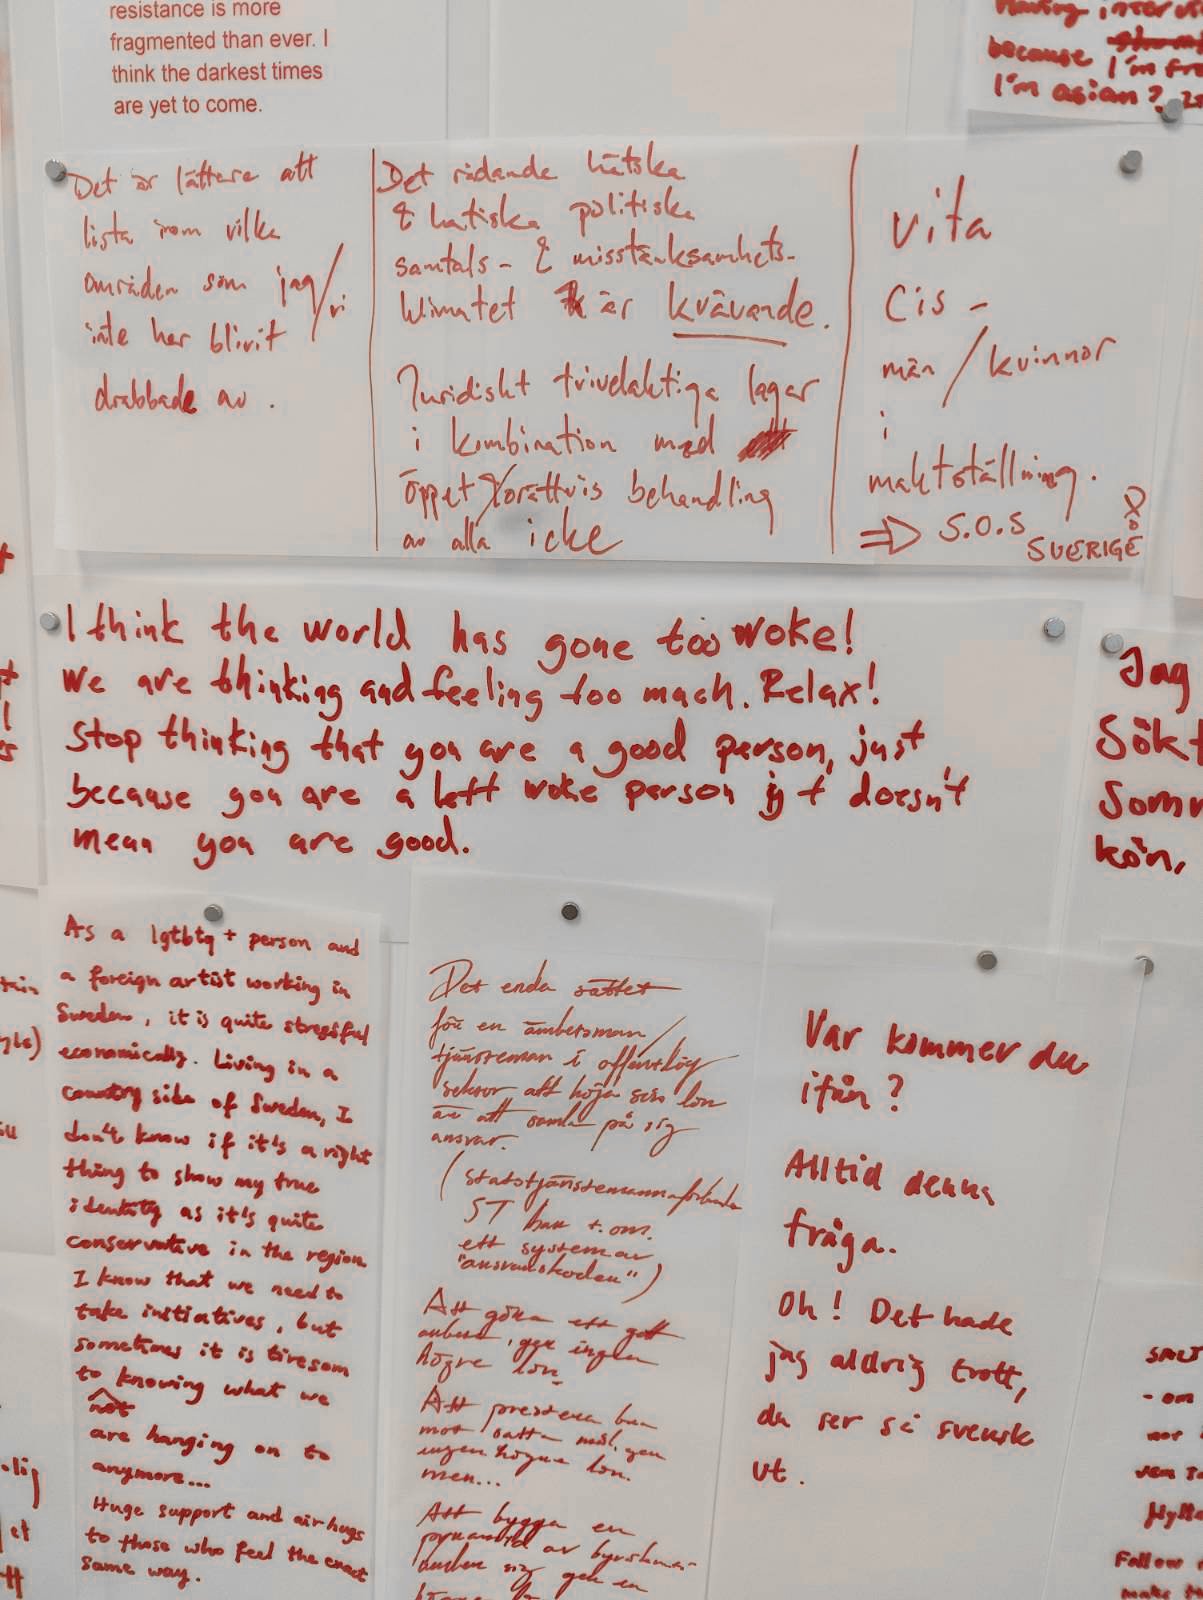 resistance is more
fragmented than ever. I
think the darkest times
are yet to come.
because I'm
I'm asian?
Det är lättare att
lista inom vilka
områden som jag/vi
inte har blivit
drabbade av.
Det rådande hätska
& hatiska politiska
samtals- & misstänksamhets-
klimatet är kvävande.
Juridiskt tvivelaktiga lagar
i kombination med
öppet orättvis behandling
av alla icke
vita
cis-
män/kvinnor
i
maktställning.
⇒ S.O.S
SVERIGE
I think the world has gone too woke!
We are thinking and feeling too mach. Relax!
Stop thinking that you are a good person, just
because you are a left woke person it doesn't
mean you are good.
Jag
Sökt
kön,
As a lgtbtq+ person and
a foreign artist working in
Sweden, it is quite stressful
economically. Living in a
country side of Sweden, I
don't know if it's a right
thing to show my true
identity as it's quite
conservative in the region
I know that we need to
take initiatives, but
sometimes it is tiresom
to knowing what we
not
are hanging on to
anymore...
Huge support and air hugs
to those who feel the exact
same way.
Det enda sättet
för en ämbetsman/
tjänsteman i offentlig
sektor att höja sin lön
är att samla på sig
ansvar.
(statstjänstemannaförbundet
ST har t.om.
ett system av
"ansvarskoder")
Att göra ett gott
arbete, ger ingen
högre lön.
Att prestera bra
mot satta mål, ger
ingen högre lön.
men...
Att bygga en
pyramid av byråkrater
under sig ger en
Var kommer du
ifrån?
Alltid denna
fråga.
Oh! Det hade
jag aldrig trott,
du ser så svensk
ut.
- om
vem
Follow
make